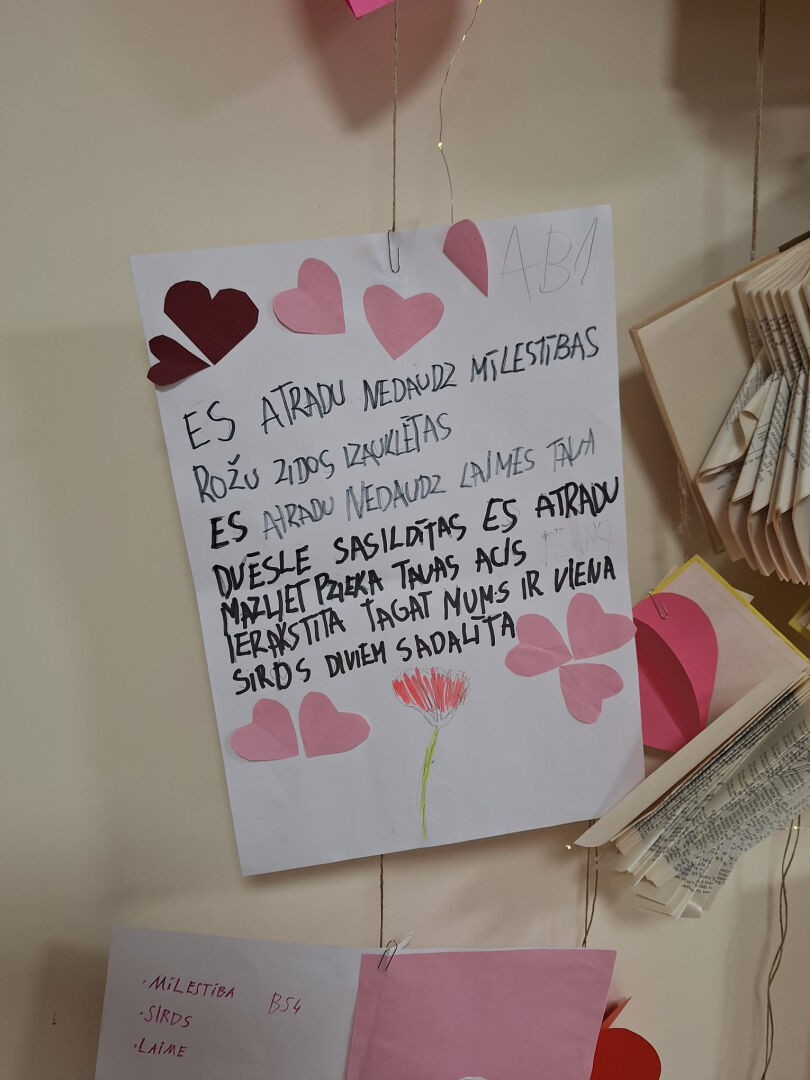 AB1
ES ATRADU NEDAUDZ MĪLESTĪBAS
ROŽU ZIDOS IZAUKLĒTAS
ES ATRADU NEDAUDZ LAIMES TAVA
DVĒSLE SASILDĪTAS ES ATRADU
MAZLIET PRIEKA TAVAS ACĪS
IERAKSTĪTA TAGAT MUMS IR VIENA
SIRDS DIVIEM SADALĪTA
·MĪLESTĪBA BS4
·SIRDS
·LAIME